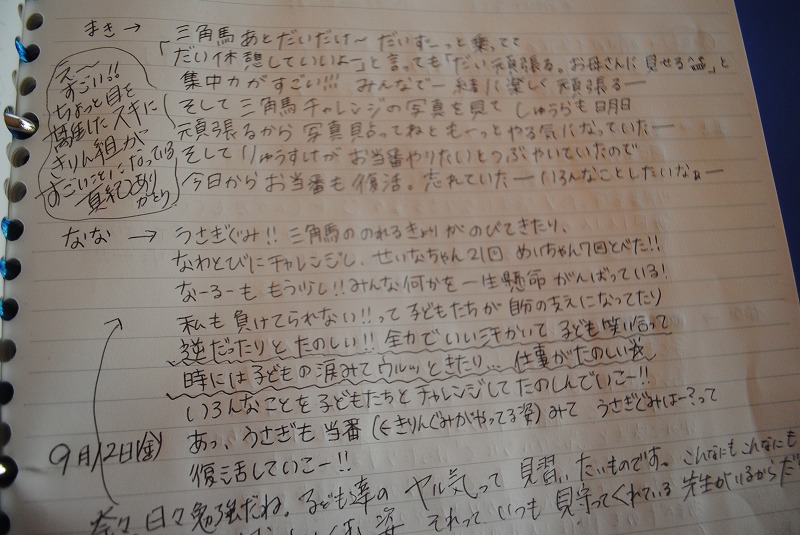 まき→
三角馬あとだいだけ〜 だいずーっと乗ってて
「だい休憩していいよー」と言っても「だい頑張る。お母さんに見せる
集中力がすごい!!! みんなで一緒に楽しく頑張るー
そして三角馬チャレンジの写真を見て しゅうらも明日
頑張るから写真貼ってねと もーっとやる気になっていたー
そしてりゅうすけが お当番やりたいとつぶやいていたので
今日からお当番も復活。忘れていたー いろんなことしたいなぁー
え〜
すごい!!
ちょっと目を
離したスキに
きりん組が
すごいことになっている
真紀ありがとう
なな → うさぎぐみ!! 三角馬ののれるきょりがのびてきたり、
なわとびにチャレンジし、せいなちゃん21回 めいちゃん7回とべた!!
なーるーも もう少し!! みんな何かを一生懸命がんばっている!
私も負けてられない!!って子どもたちが自分の支えになってたり
逆だったりとたのしい!! 全力でいい汗かいて子どもと笑い合って
時には子どもの涙みてウルッときたり… 仕事がたのしい
いろんなことを子どもたちとチャレンジしてたのしんでいこー!!
あっ、うさぎも当番(←きりんぐみがやってる姿)みて うさぎぐみはー?って
復活していこー!!
9月12日(金)
奈々、日々勉強だね。子ども達のヤル気って見習いたいものです。こんなにもこんなにも
姿 それって いつも見守ってくれている先生がいるからだ